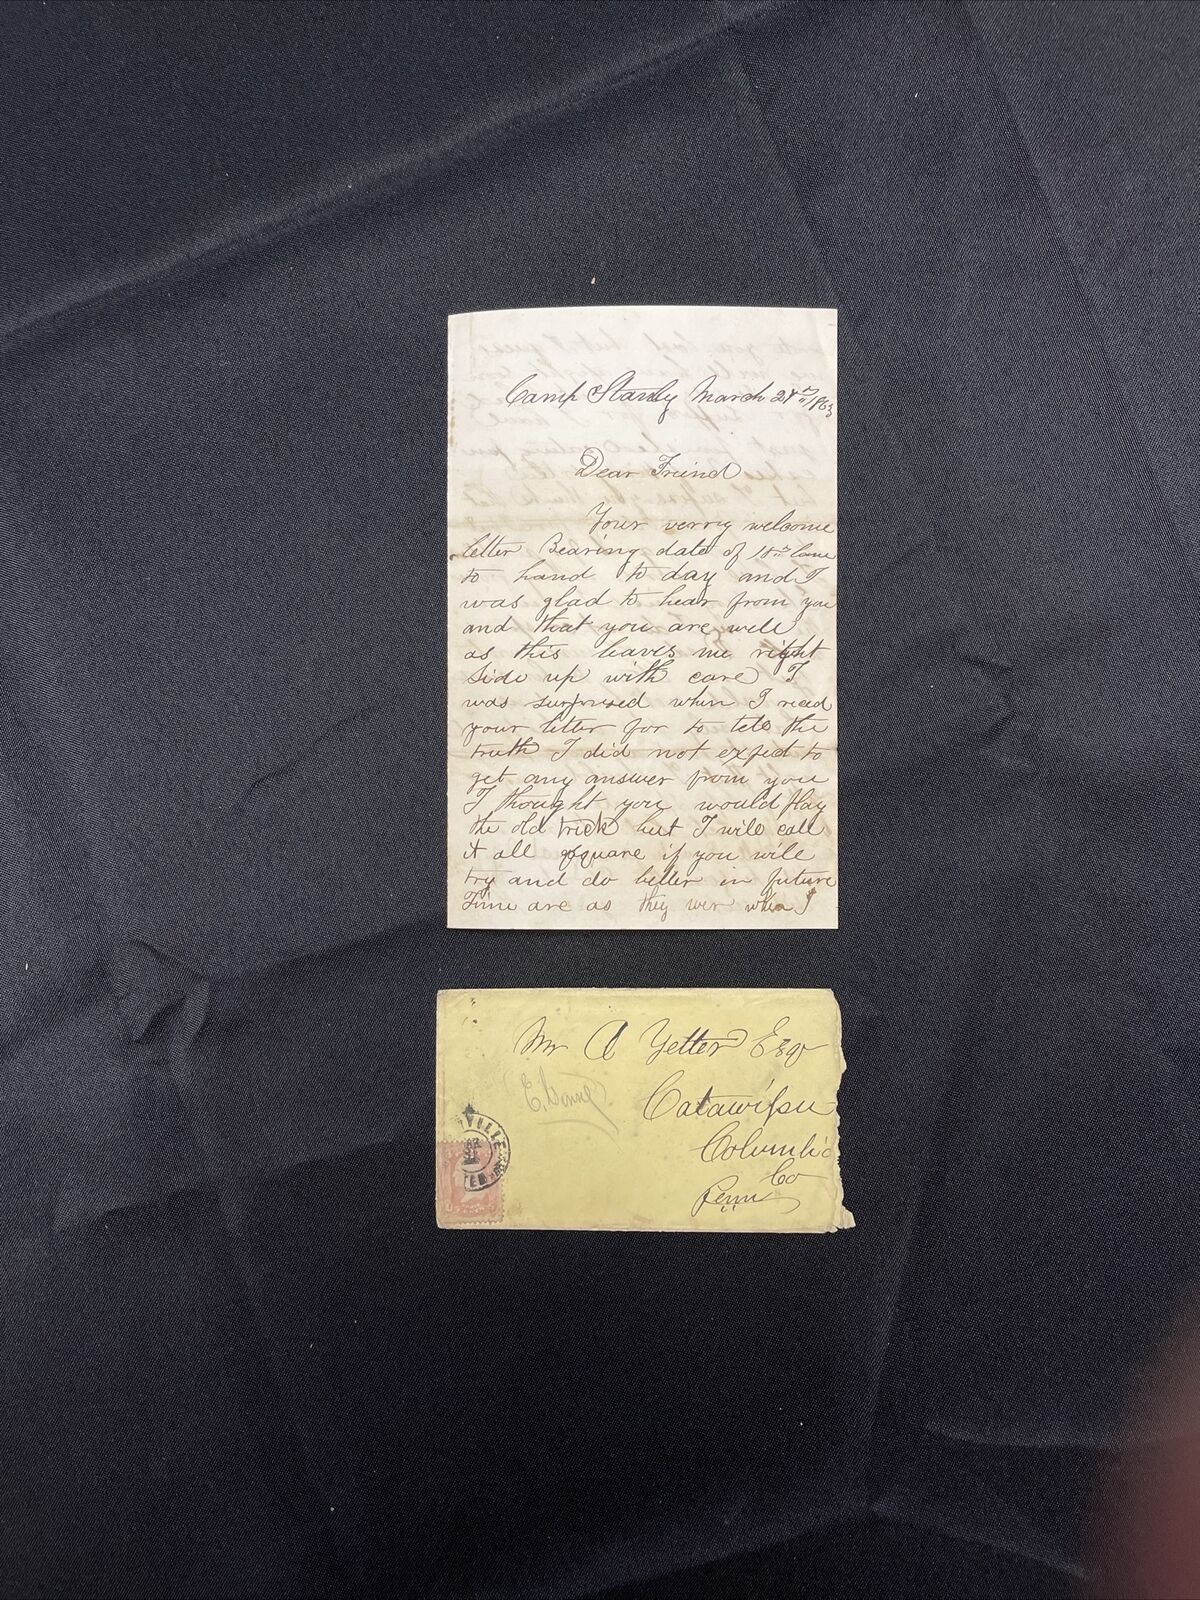 Camp Stanly March 28th 1863
Dear Friend
Your verry welcome
letter Bearing date of 18th Came
to hand to day and I
was glad to hear from you
and that you are well
as this leaves me right
side up with care I
was surprised when I read
your letter for to tell the
truth I did not expect to
get any answer from you
I thought you would play
the old trick but I will call
it all square if you will
try and do better in future
Time are as they wer when I
Mr A Yetter Esqr
Catawissa
Columbia
Co
Penn
TEN